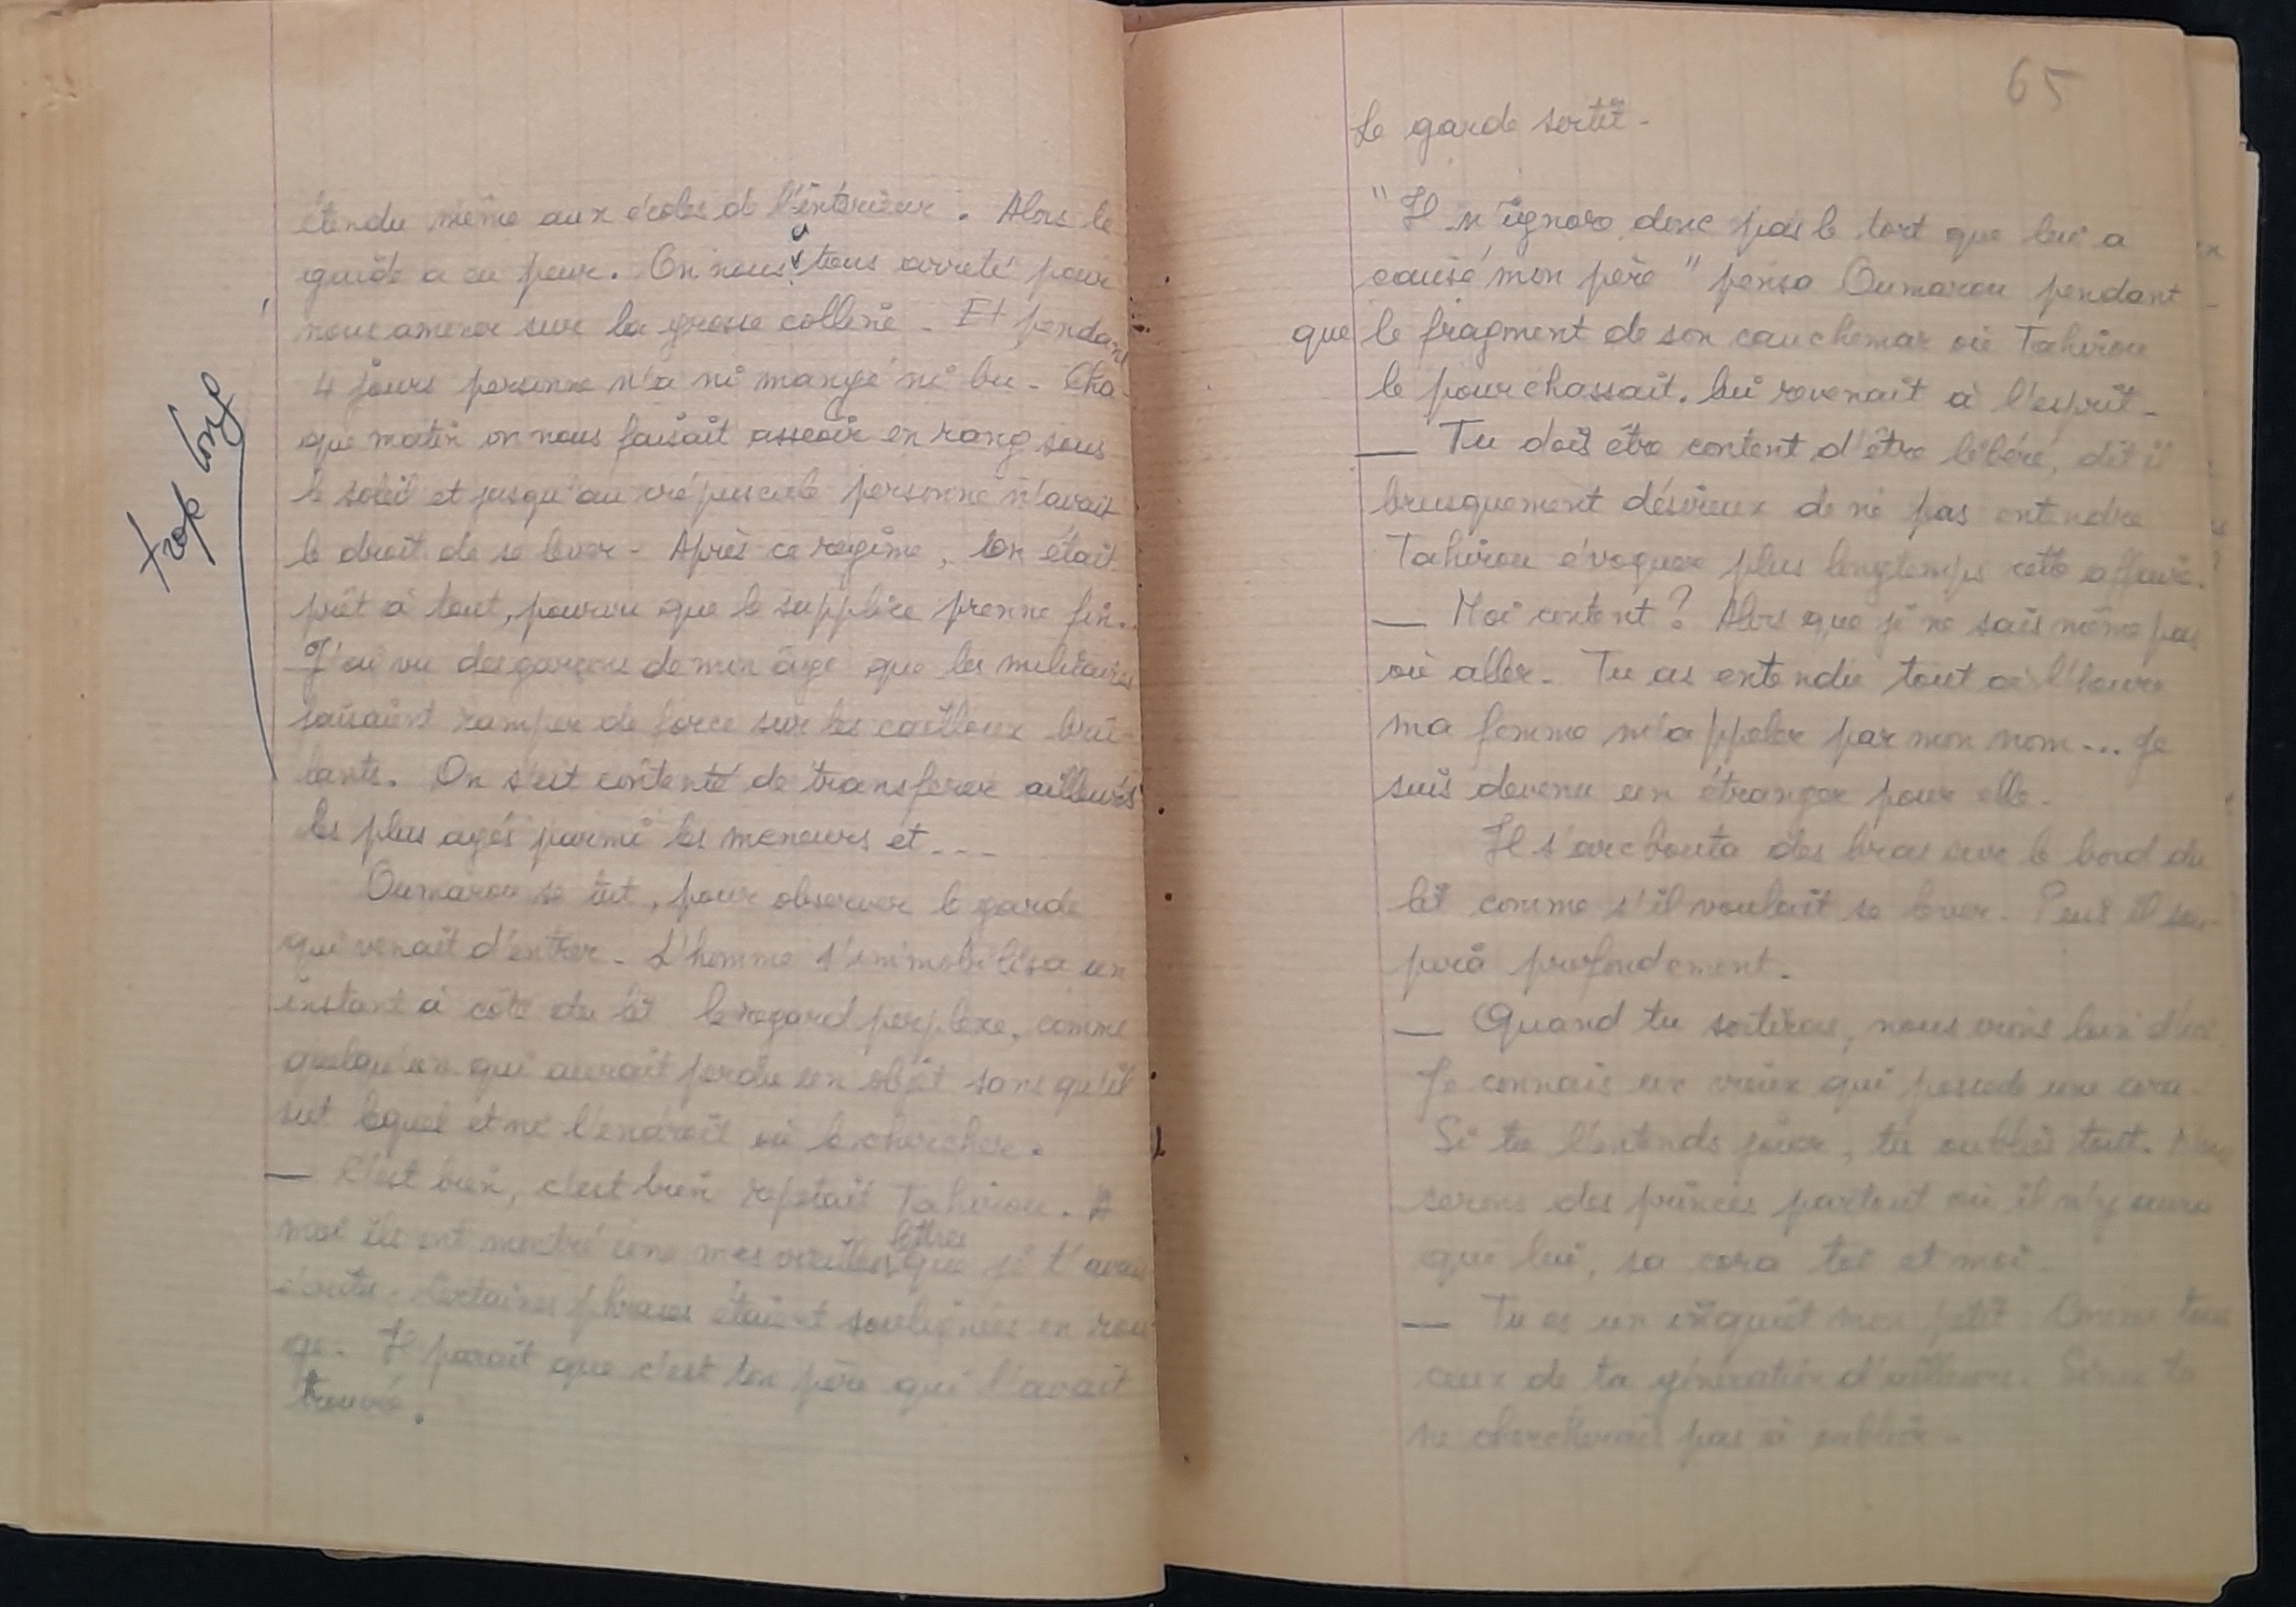 étendu même aux écoles de l'intérieur. Alors le
guide a eu peur. On nous a tous arreté pour
nous amener sur la grosse colline - Et pendant
4 jours personne n'a ni mangé ni bu - Cha-
que matin on nous faisait asseoir en rang sous
le soleil et jusqu'au crépuscule personne n'avait
le droit de se lever - Après ce regime, l'on était
prêt à tout, pourvu que le supplice prenne fin..
J'ai vu des garçons de mon âge que les militaires
faisaient ramper de force sur les cailloux brû-
lants. On s'est contenté de transferer ailleurs
les plus agés parmi les meneurs et ---
trop long
Oumarou se tut, pour observer le garde
qui venait d'entrer - L'homme s'immobilisa un
instant à côté du lit le regard perplexe, comme
quelqu'un qui aurait perdu un objet sans qu'il
sut lequel et ni l'endroit où le chercher.
— C'est bien, c'est bien repetait Tahirou. A
moi ils ont montré mes lettres que je t'avais
écrites. Certaines phrases étaient soulignées en rou-
ge. Il parait que c'est ton père qui l'avait
trouvé.
65
Le garde sortit -
"Il n'ignore donc pas le tort que lui a
causé mon père" pensa Oumarou pendant
que le fragment de son cauchemar où Tahirou
le pourchassait. lui revenait à l'esprit -
— Tu dois être content d'être libéré, dit il
brusquement désireux de ne pas entendre
Tahirou évoquer plus longtemps cette affaire.
— Moi content ? Alors que je ne sais même pas
où aller - Tu as entendu tout à l'heure
ma femme m'appeler par mon nom... Je
suis devenu un étranger pour elle -
Il s'arcbouta des bras sur le bord du
lit comme s'il voulait se lever. Puis il sou-
pira profondement -
— Quand tu sortiras, nous irons loin d'ici
Je connais un vieux qui possede une cora -
Si tu l'entends jouer, tu oublies tout. Nous
serons des princes partout où il n'y aura
que lui, sa cora toi et moi -
— Tu es un inquiet mon petit Comme tous
ceux de ta génération d'ailleurs. Sinon tu
ne chercherais pas à oublier -